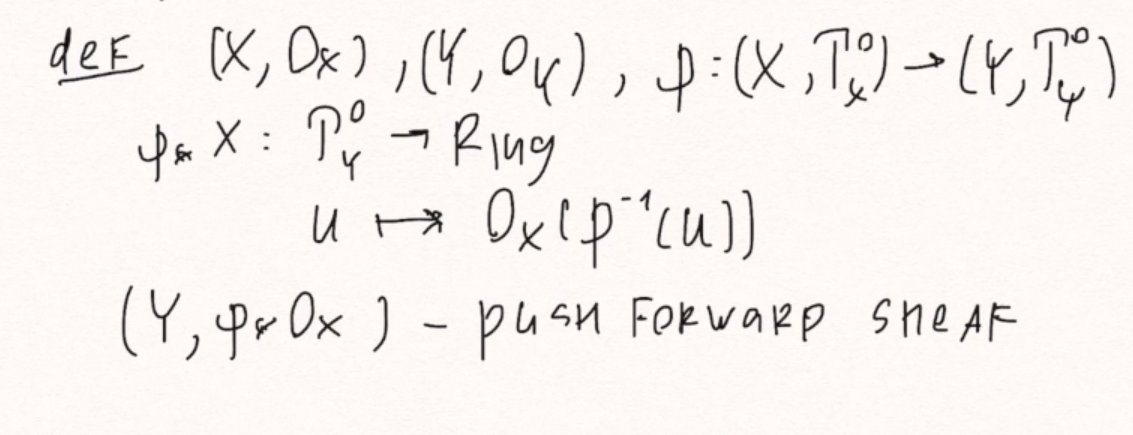 def (X, O_X), (Y, O_Y), φ: (X, T_X^0) → (Y, T_Y^0)
φ_* X: T_Y^0 → Ring
U ↦ O_X(φ^{-1}(U))
(Y, φ_* O_X) - push forward sheaf